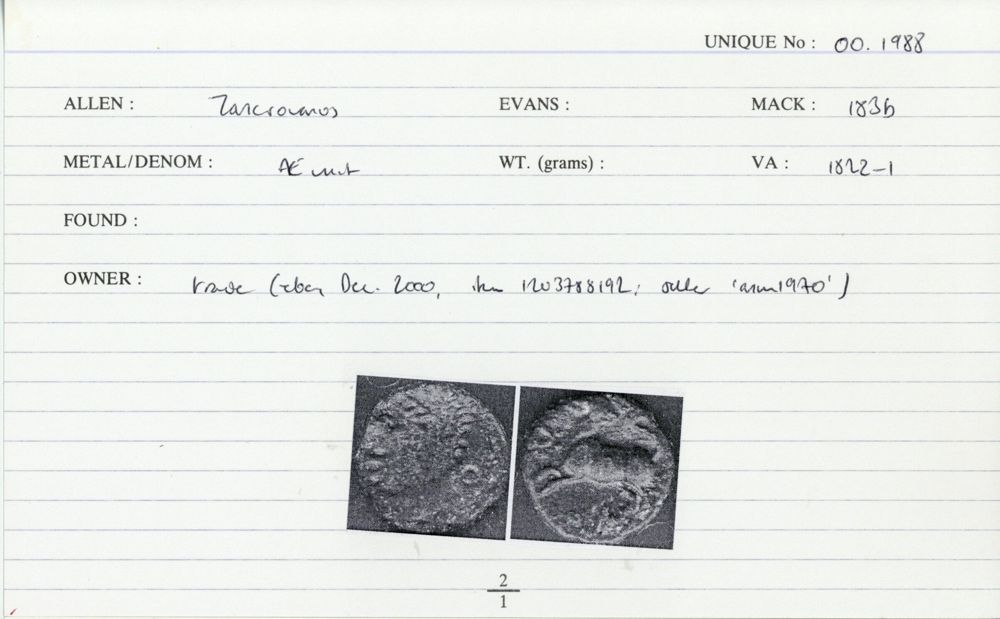 UNIQUE No : 00. 1988
ALLEN : Tasciovanos EVANS : MACK : 183b
METAL/DENOM : AE unit WT. (grams) : VA : 1822-1
FOUND :
OWNER : trade (ebay Dec. 2000, item 1203788192; seller 'asm1970')
2
1